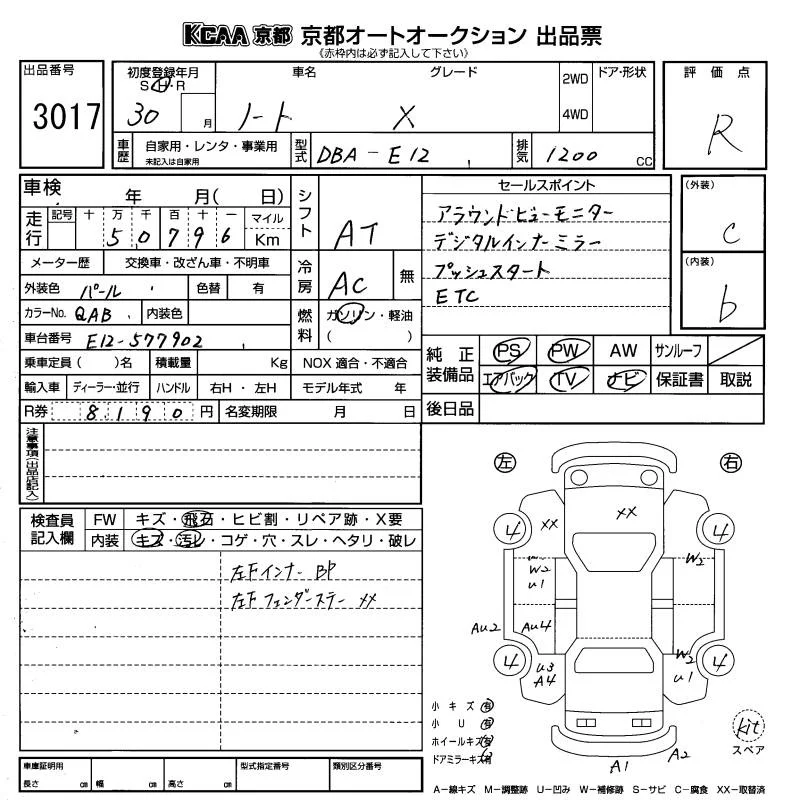 KCAA 京都 京都オートオークション 出品票
《赤枠内は必ず記入して下さい》
出品番号
3017
初度登録年月
S・H・R
30 月
車名
ノート
グレード
X
2WD
4WD
ドア・形状
評価点
R
車歴
自家用・レンタ・事業用
未記入は自家用
型式
DBA-E12
排気
1200 CC
車検 年 月( 日)
走行
記号 十 万 千 百 十 一 マイル
5 0 7 9 6 Km
メーター歴 交換車・改ざん車・不明車
外装色 パール 色替 有
カラーNo. QAB 内装色
車台番号 E12-577902
乗車定員( )名 積載量 Kg
輸入車 ディーラー・並行 ハンドル 右H・左H
R券 8,190 円 名変期限 月 日
シフト
AT
冷房
AC 無
燃料
ガソリン・軽油
( )
NOX 適合・不適合
モデル年式 年
セールスポイント
アラウンドビューモニター
デジタルインナーミラー
プッシュスタート
ETC
(外装)
C
(内装)
b
純正装備品
PS PW AW サンルーフ
エアバック TV ナビ 保証書 取説
後日品
注意事項(出品店記入)
検査員記入欄
FW キズ・飛石・ヒビ割・リペア跡・X要
内装 キズ・汚レ・コゲ・穴・スレ・ヘタリ・破レ
左Fインナー BP
左Fフェンダーステー XX
左 右
4 XX XX 4
W2 U1 W2
AU2 AU4
4 U3 A4 W2 U1 4
小キズ 有
小U 有
ホイールキズ 有
ドアミラーキズ 有
A1 A2
kit
スペア
A-線キズ M-調整跡 U-凹み W-補修跡 S-サビ C-腐食 XX-取替済
車庫証明用
長さ cm 幅 cm 高さ cm
型式指定番号
類別区分番号